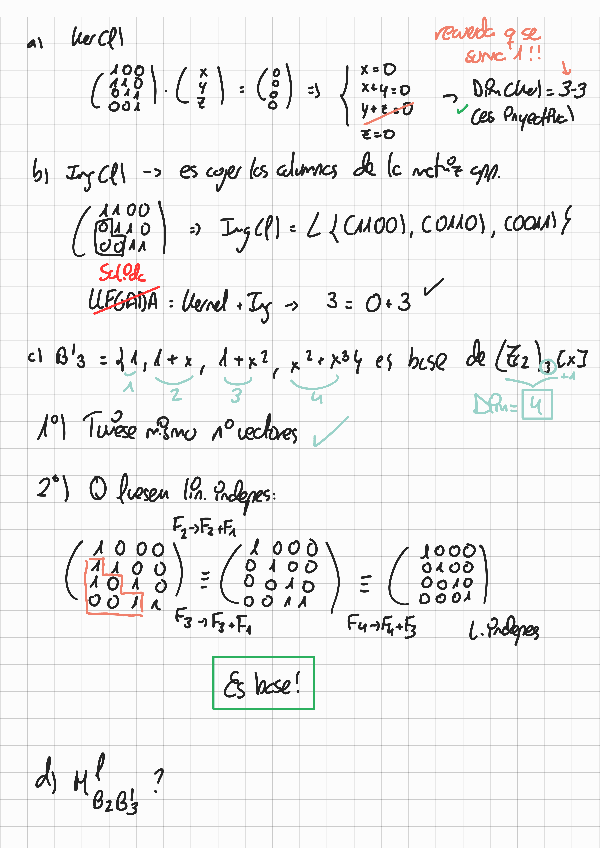 a) Ker(f)
recuerda q se
suma 1!!
(1 0 0 / 1 1 0 / 0 1 1 / 0 0 1) · (x / y / z) = (0 / 0 / 0 / 0) => { x=0
x+y=0
y+z=0
z=0
→ Dim(Ker)=3-3
✓ (es inyectiva)
b) Img(f) → es coger las columnas de la matriz app.
(1 1 0 0 / 0 1 1 0 / 0 0 1 1) => Img(f) = L {(1100), (0110), (0011)}
Salida
LLEGADA = Kernel + Img → 3 = 0+3 ✓
c) B'3 = {1, 1+x, 1+x², x²+x³} es base de (Z2)3[x]
1 2 3 4 +1
Dim= 4
1º) Tuviese mismo nº vectores ✓
2º) Q fuesen lin. indepes:
F2→F2+F1
(1 0 0 0 / 1 1 0 0 / 1 0 1 0 / 0 0 1 1) ≡ (1 0 0 0 / 0 1 0 0 / 0 0 1 0 / 0 0 1 1) ≡ (1 0 0 0 / 0 1 0 0 / 0 0 1 0 / 0 0 0 1)
F3→F3+F1 F4→F4+F3 L. indepes
Es base!
d) M f B2B'3 ?